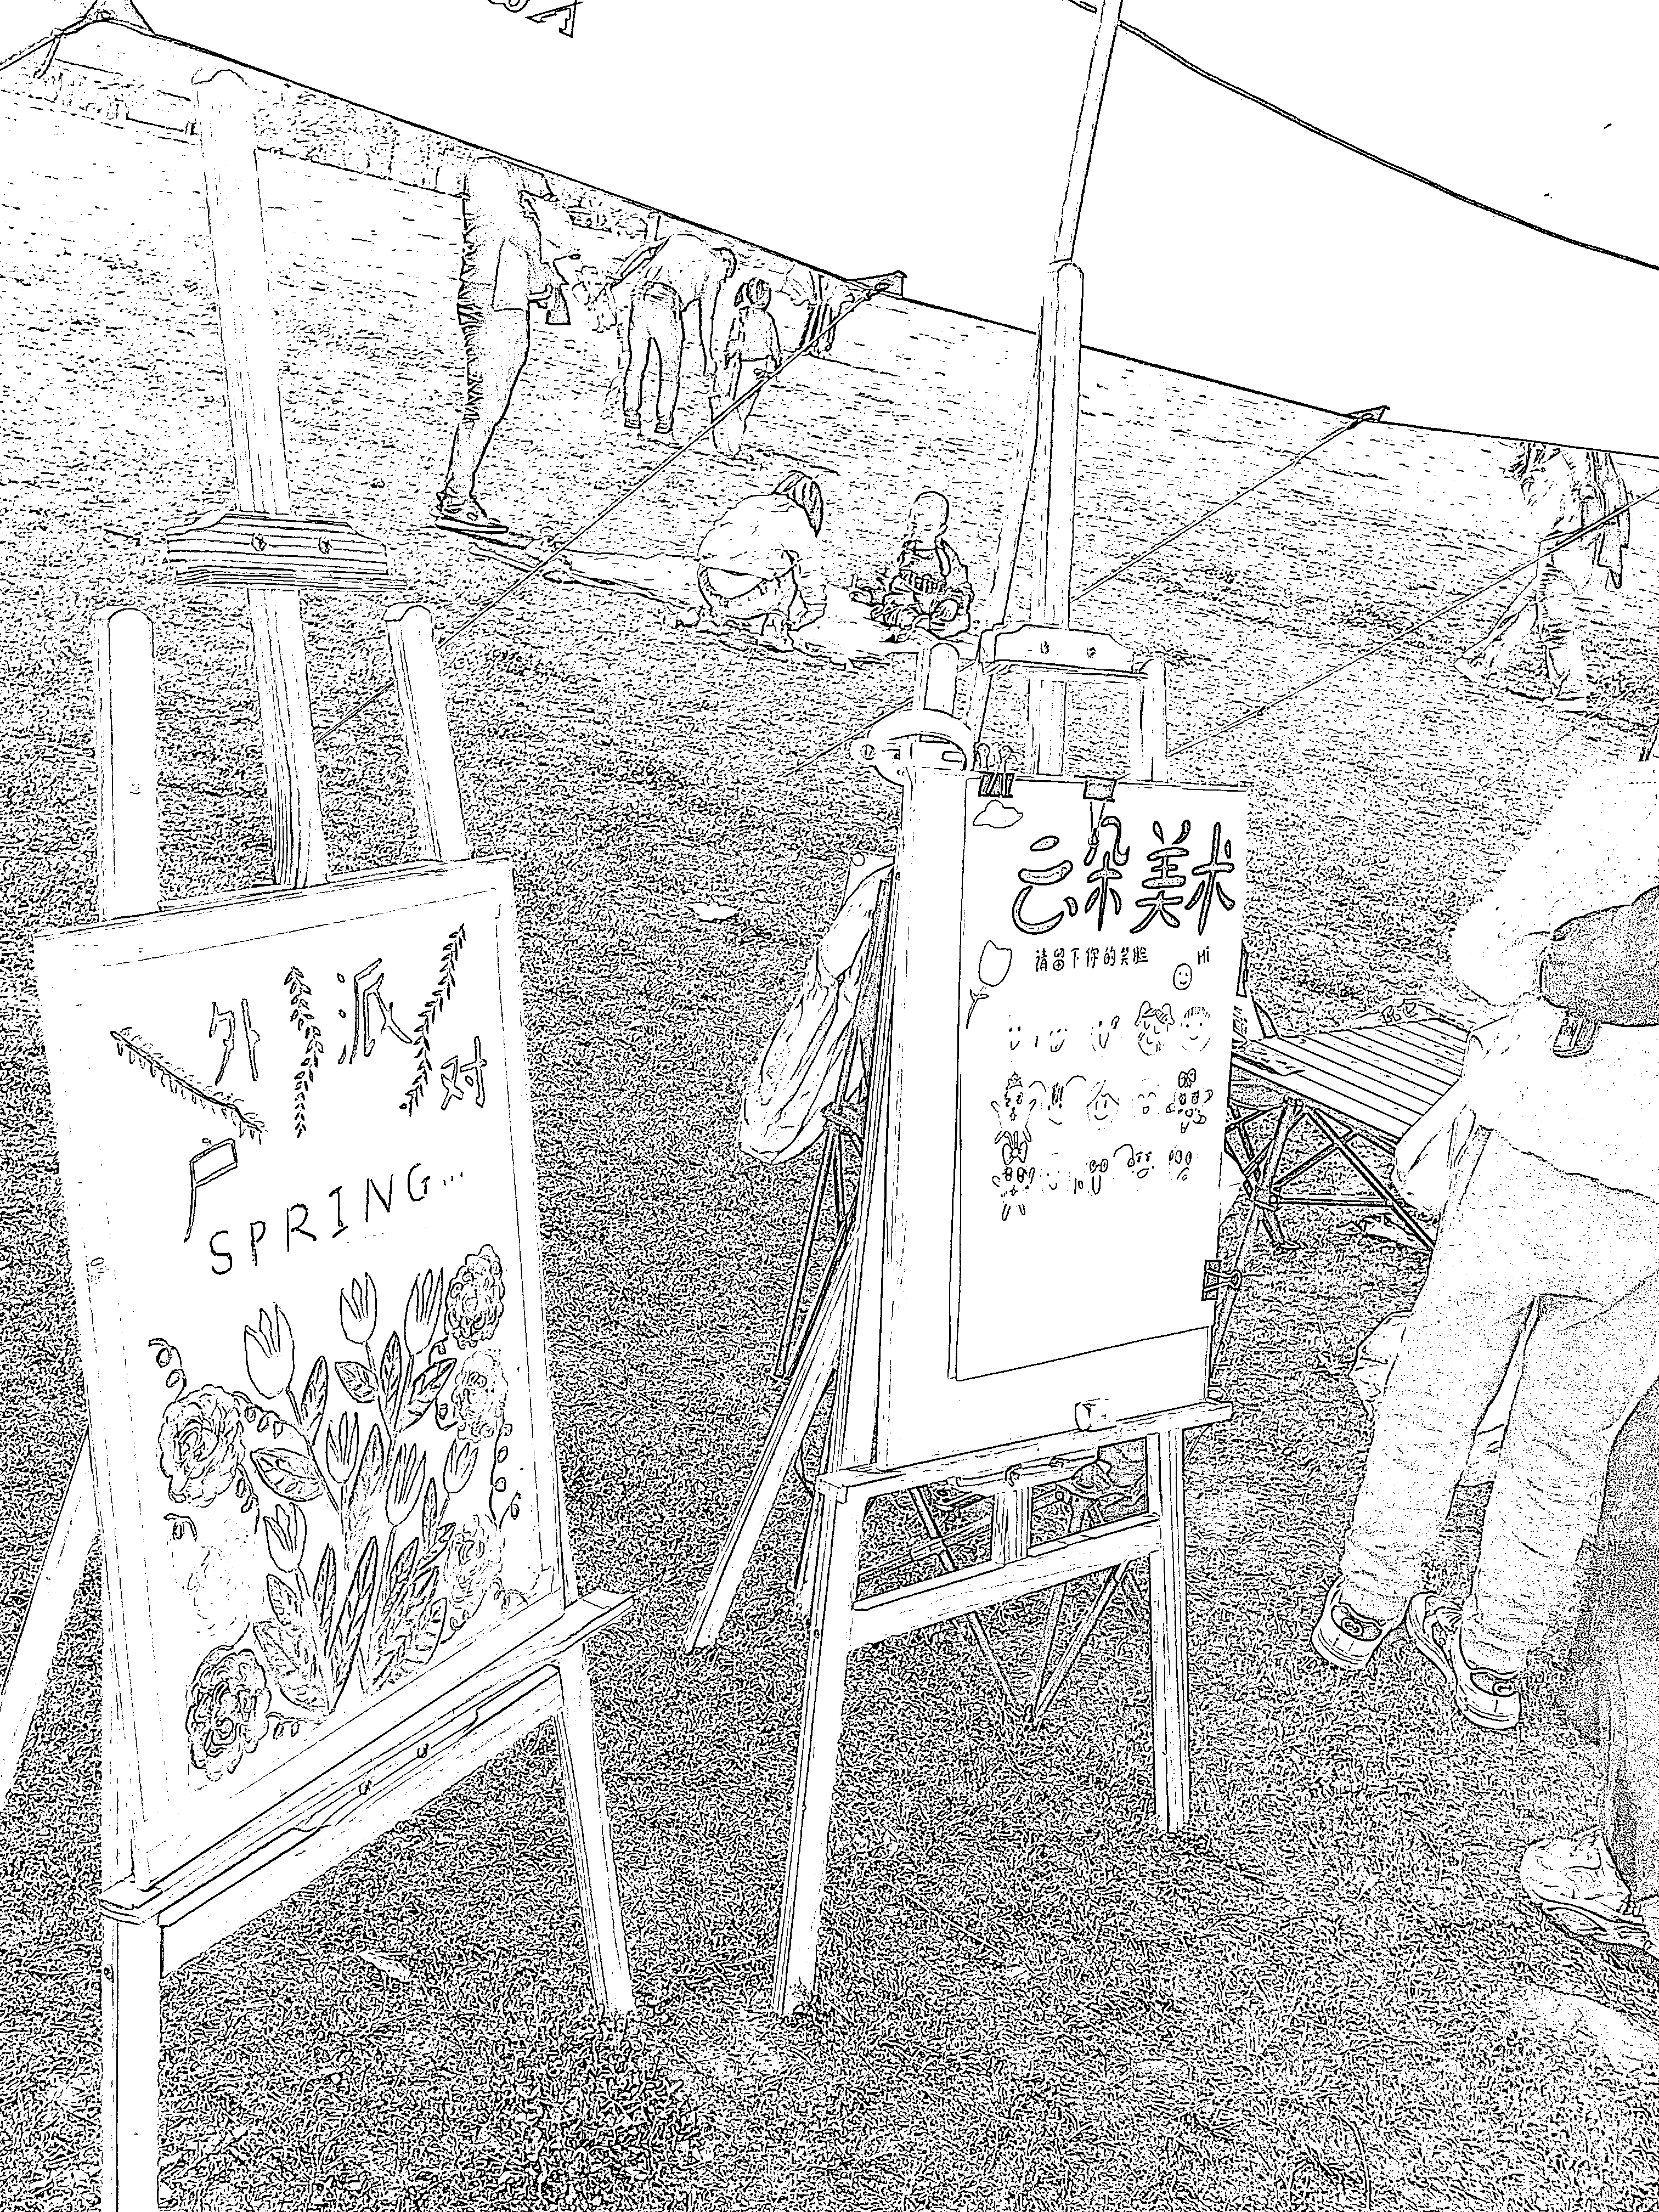 户外派对
SPRING...
云朵美术
请留下你的笑脸
Hi